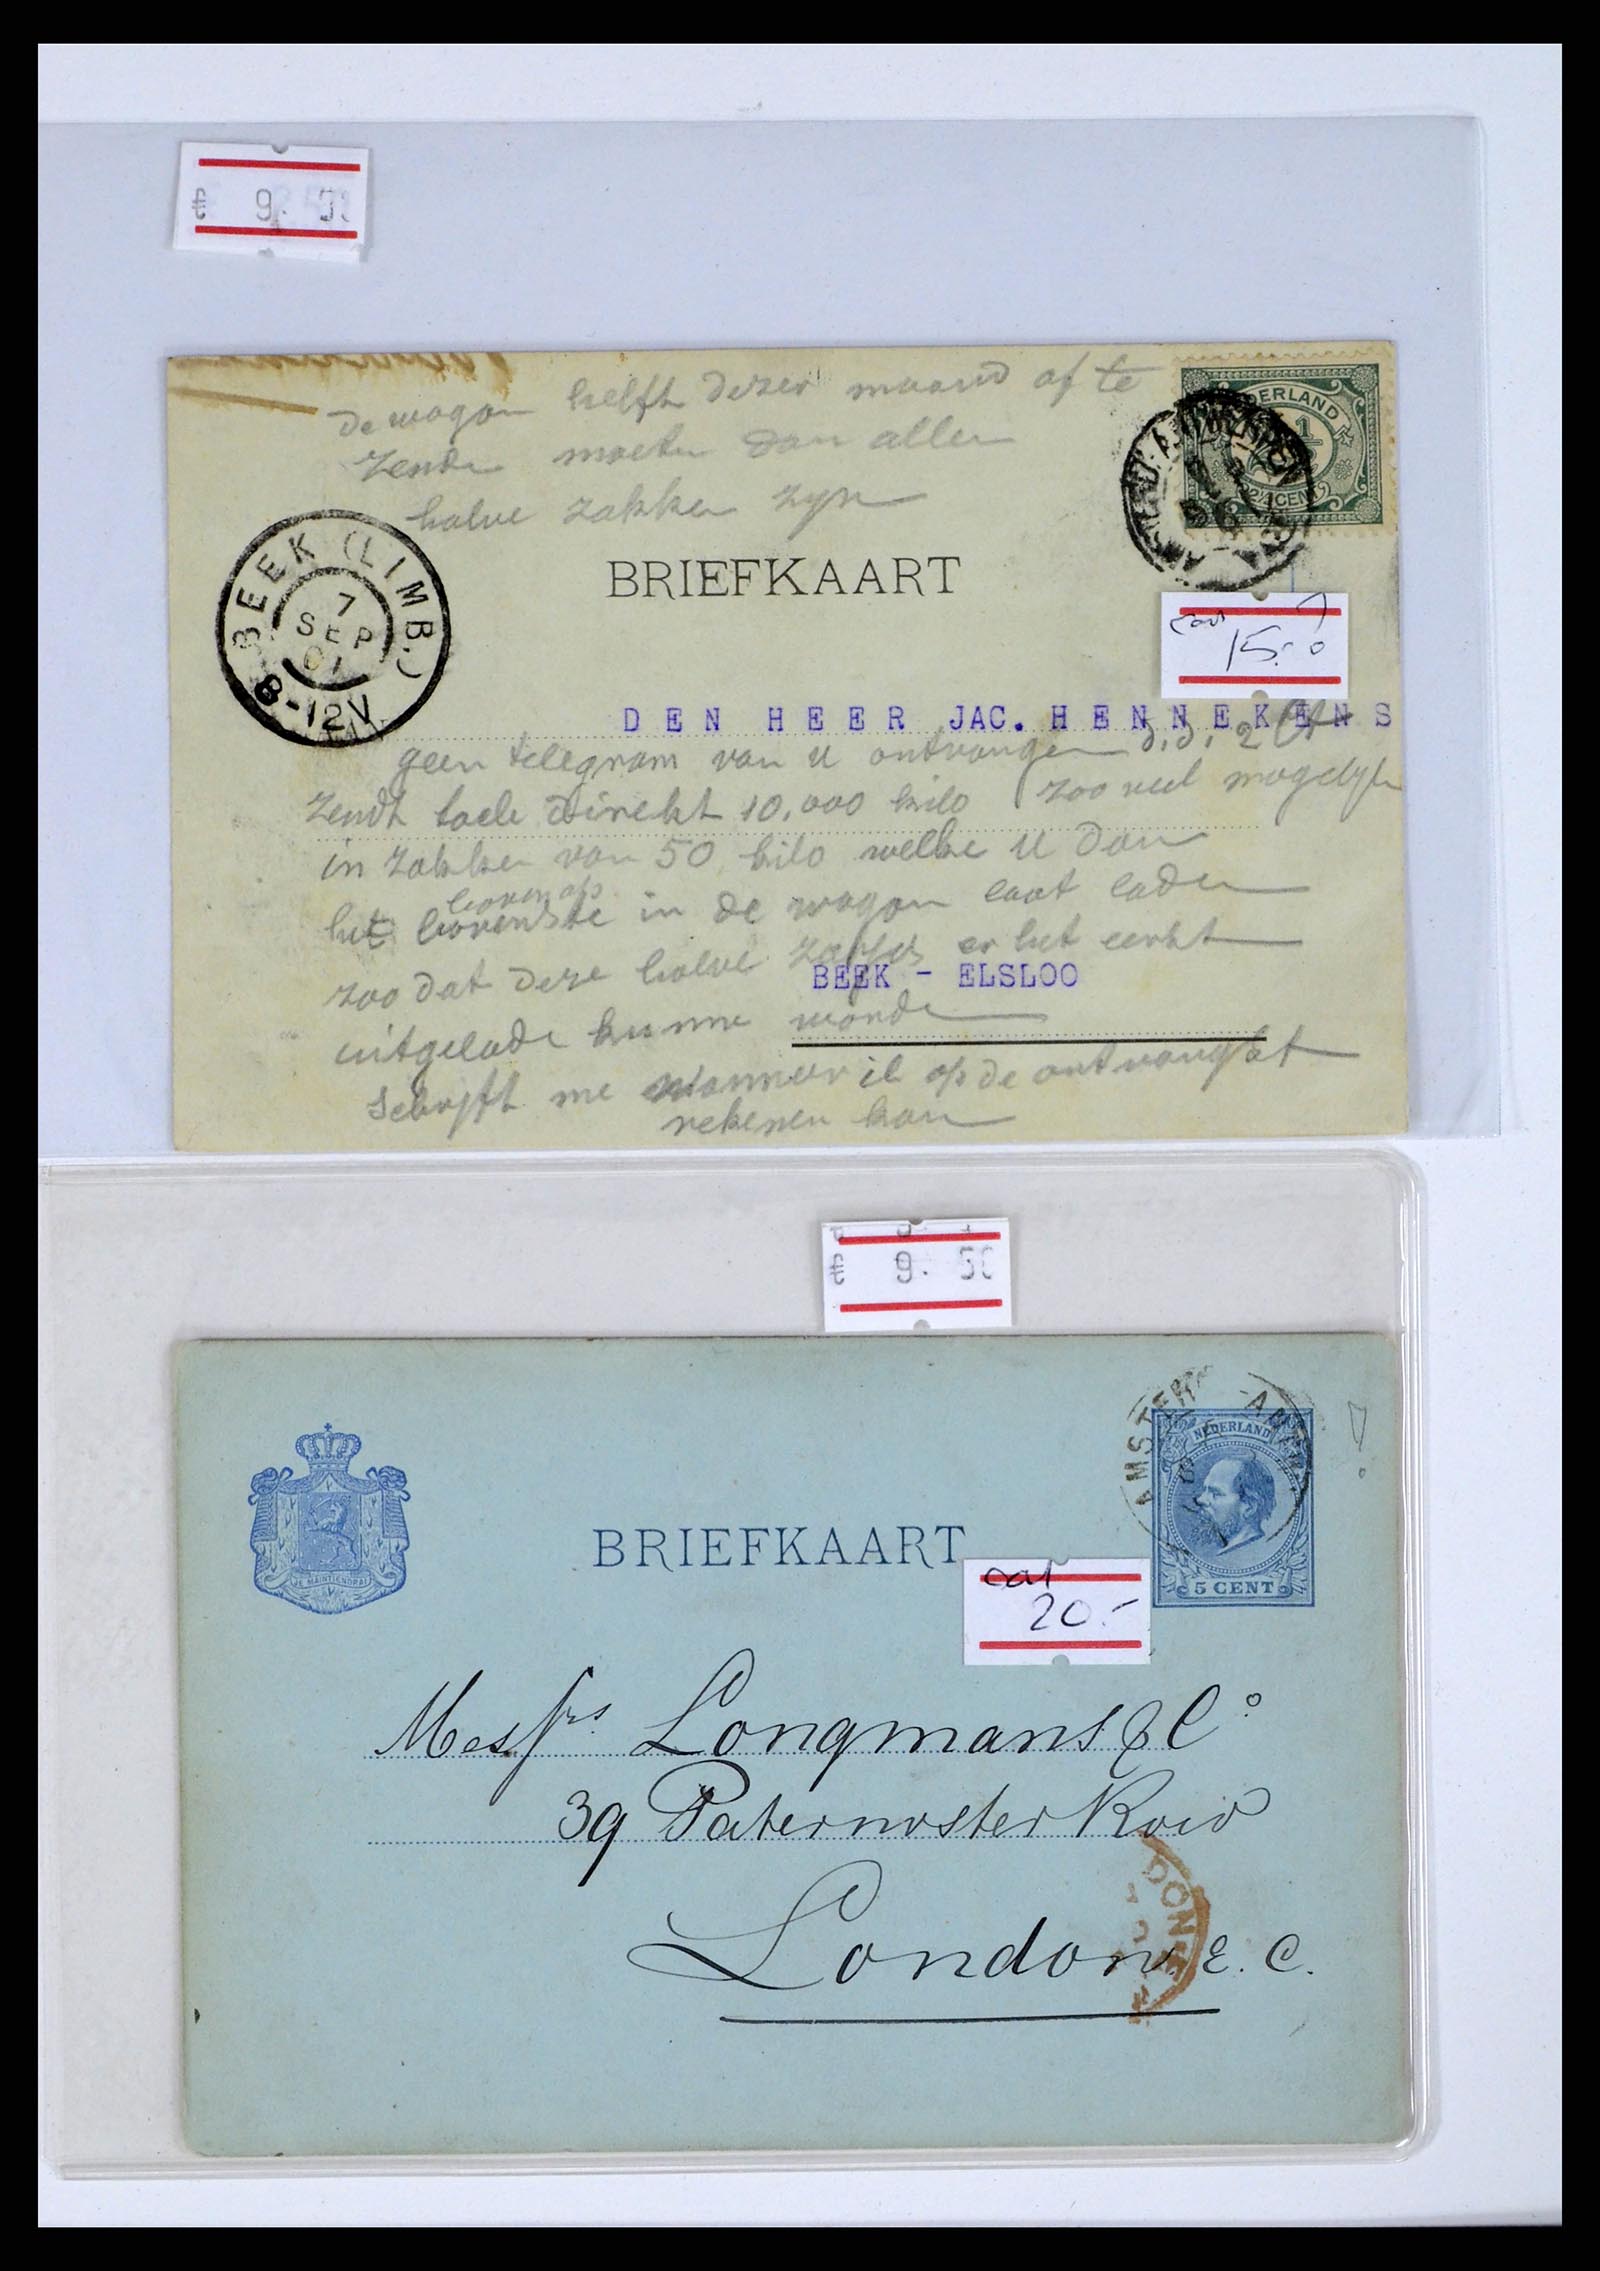 € 9. 50
de wagon helft dezer maand af te
zende moeten dan allen
halve zakken zyn
NEDERLAND
2½ CENT
BEEK (LIMB.)
7
SEP
01
8-12V
BRIEFKAART
15.-
DEN HEER JAC. HENNEKENS
geen telegram van u ontvangen d.d. 2
Zendt direkt 10.000 kilo zooveel mogelyk
in zakken van 50 kilo welke u dan
bovenop
het bovenste in de wagon laat laden
zoo dat deze halve er het eerst
BEEK - ELSLOO
uitgelade kunne worde
Schryft me wanneer ik op de ontvangst
rekenen kan
€ 9. 50
AMSTERDAM
NEDERLAND
5 CENT
!
JE MAINTIENDRAI
BRIEFKAART
cat
20.-
Messrs. Longmans & Co
39 Paternoster Row
London E. C.
LONDON